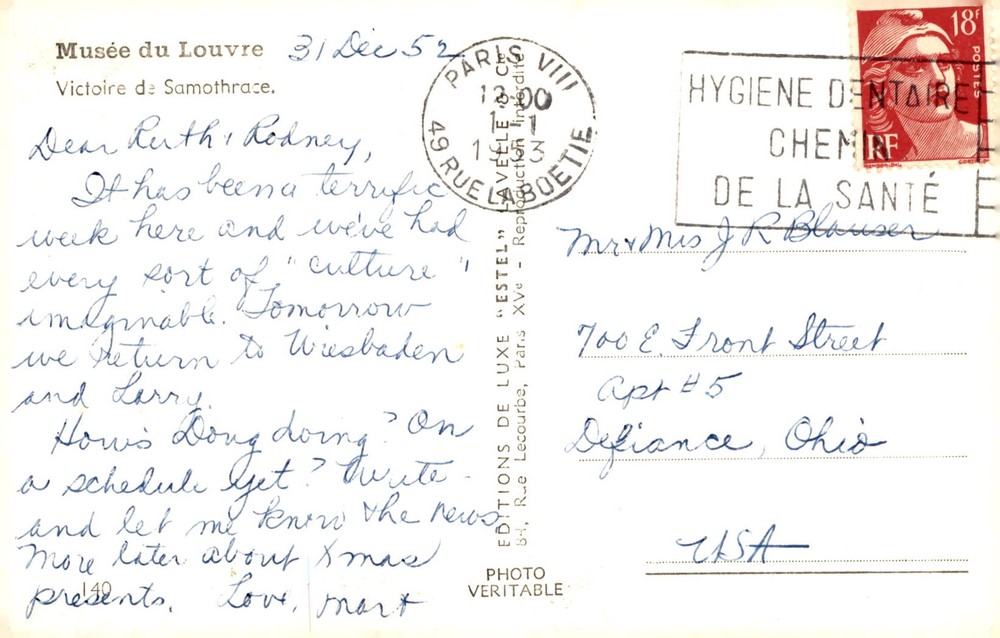 Musée du Louvre
31 Dec 52
Victoire de Samothrace.
Dear Ruth & Rodney,
It has been a terrific
week here and we've had
every sort of "culture"
imaginable. Tomorrow
we return to Wiesbaden
and Larry.
How's Doug doing? On
a schedule yet? Write -
and let me know the news
More later about Xmas
presents. Love, Mart
140
EDITIONS DE LUXE "ESTEL" LAVELLE & Cie
84, Rue Lecourbe, Paris XVe - Reproduction interdite
PHOTO
VERITABLE
PARIS VIII
49 RUE LA BOETIE
HYGIENE DENTAIRE
CHEMIN
DE LA SANTÉ
18F
POSTES
RF
Mr & Mrs J R Blauser
700 E. Front Street
Apt #5
Defiance, Ohio
USA